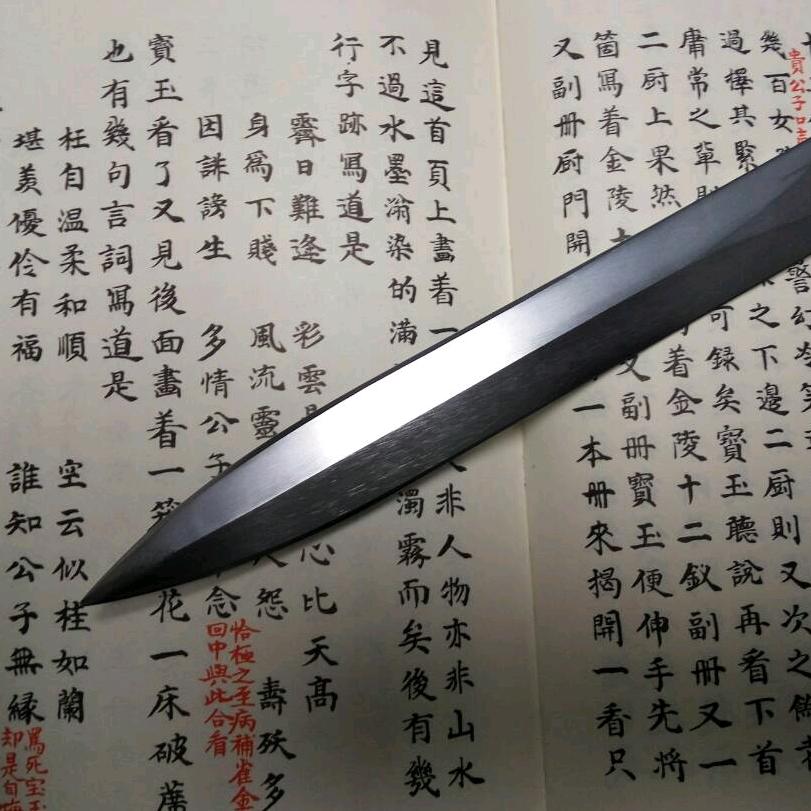 貴公子口
幾百女
警幻冷笑
過擇其緊
之下邊二厨則又次之餘者
庸常之軰則
可録矣寶玉聽說再看下首
二厨上果然
着金陵十二釵副冊又一
箇寫着金陵十
又副冊寶玉便伸手先將
又副冊厨門開
一本冊來揭開一看只
見這首頁上畫着一
非人物亦非山水
不過水墨滃染的滿
濁霧而矣後有幾
行字跡寫道是
霽日難逢 彩雲
心比天高
身爲下賤 風流靈
人怨 壽殀多
因誹謗生 多情公子
念
恰極之至病補雀金
回中與此合看
寶玉看了又見後面畫着一
花一床破蓆
也有幾句言詞寫道是
枉自温柔和順 空云似桂如蘭
堪羡優伶有福 誰知公子無縁
罵死宝玉
却是自悔